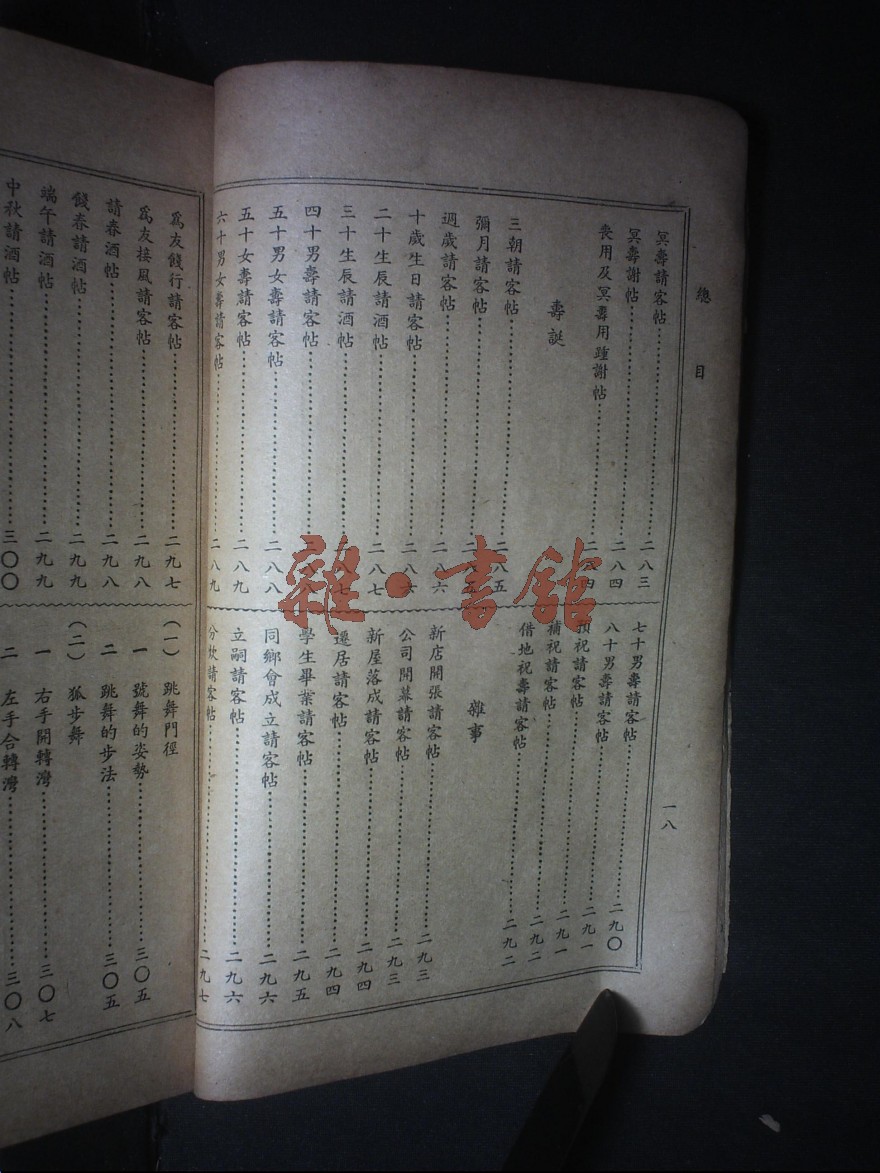 總目
一八
冥壽請客帖……二八三
冥壽謝帖……二八四
喪用及冥壽用踵謝帖……二八四
壽誕
三朝請客帖……二八五
彌月請客帖……二八五
週歲請客帖……二八六
十歲生日請客帖……二八六
二十生辰請酒帖……二八七
三十生辰請酒帖……二八七
四十男壽請客帖……
五十男女壽請客帖……二八八
五十女壽請客帖……二八九
六十男女壽請客帖……二八九
七十男壽請客帖……二九〇
八十男壽請客帖……二九一
預祝請客帖……二九一
補祝請客帖……二九二
借地祝壽請客帖……二九二
雜事
新店開張請客帖……二九三
公司開幕請客帖……二九三
新屋落成請客帖……二九四
遷居請客帖……二九四
學生畢業請客帖……二九五
同鄉會成立請客帖……二九六
立嗣請客帖……二九六
分炊請客帖……二九七
為友餞行請客帖……二九七
為友接風請客帖……二九八
請春酒帖……二九八
餞春請酒帖……二九九
端午請酒帖……二九九
中秋請酒帖……三〇〇
(一) 跳舞門徑
一 號舞的姿勢……三〇五
二 跳舞的步法……三〇五
(二) 狐步舞
一 右手開轉灣……三〇七
二 左手合轉灣……三〇八
雜·書館